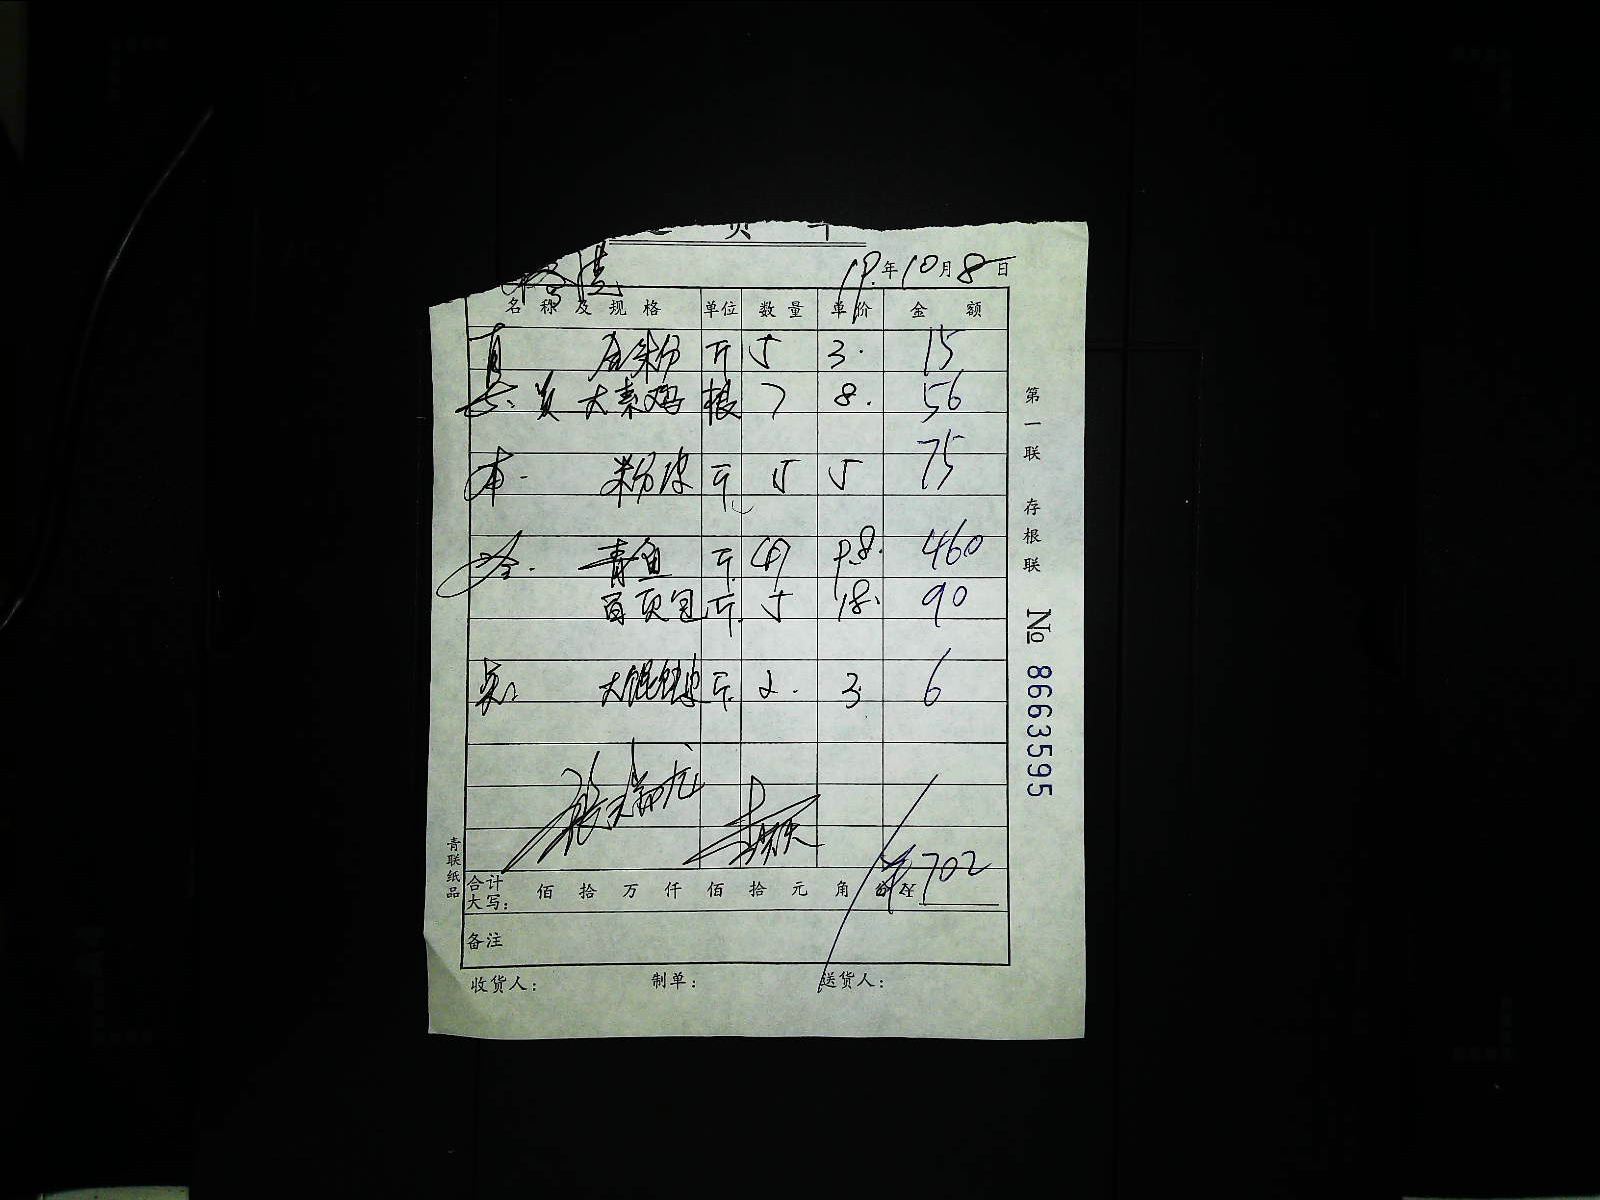 19年10月8日
名称及规格 单位 数量 单价 金额
斤 5 3. 15
大素鸡 根 7 8. 56
本. 粉皮 斤 5 5 75
冷. 青鱼 斤. 47 9.8. 460
百页包 斤. 5 18. 90
大馄饨皮 斤. 2. 3. 6
合计大写： 佰 拾 万 仟 佰 拾 元 角 702
备注
收货人： 制单： 送货人：
第一联 存根联 № 8663595
青联纸品